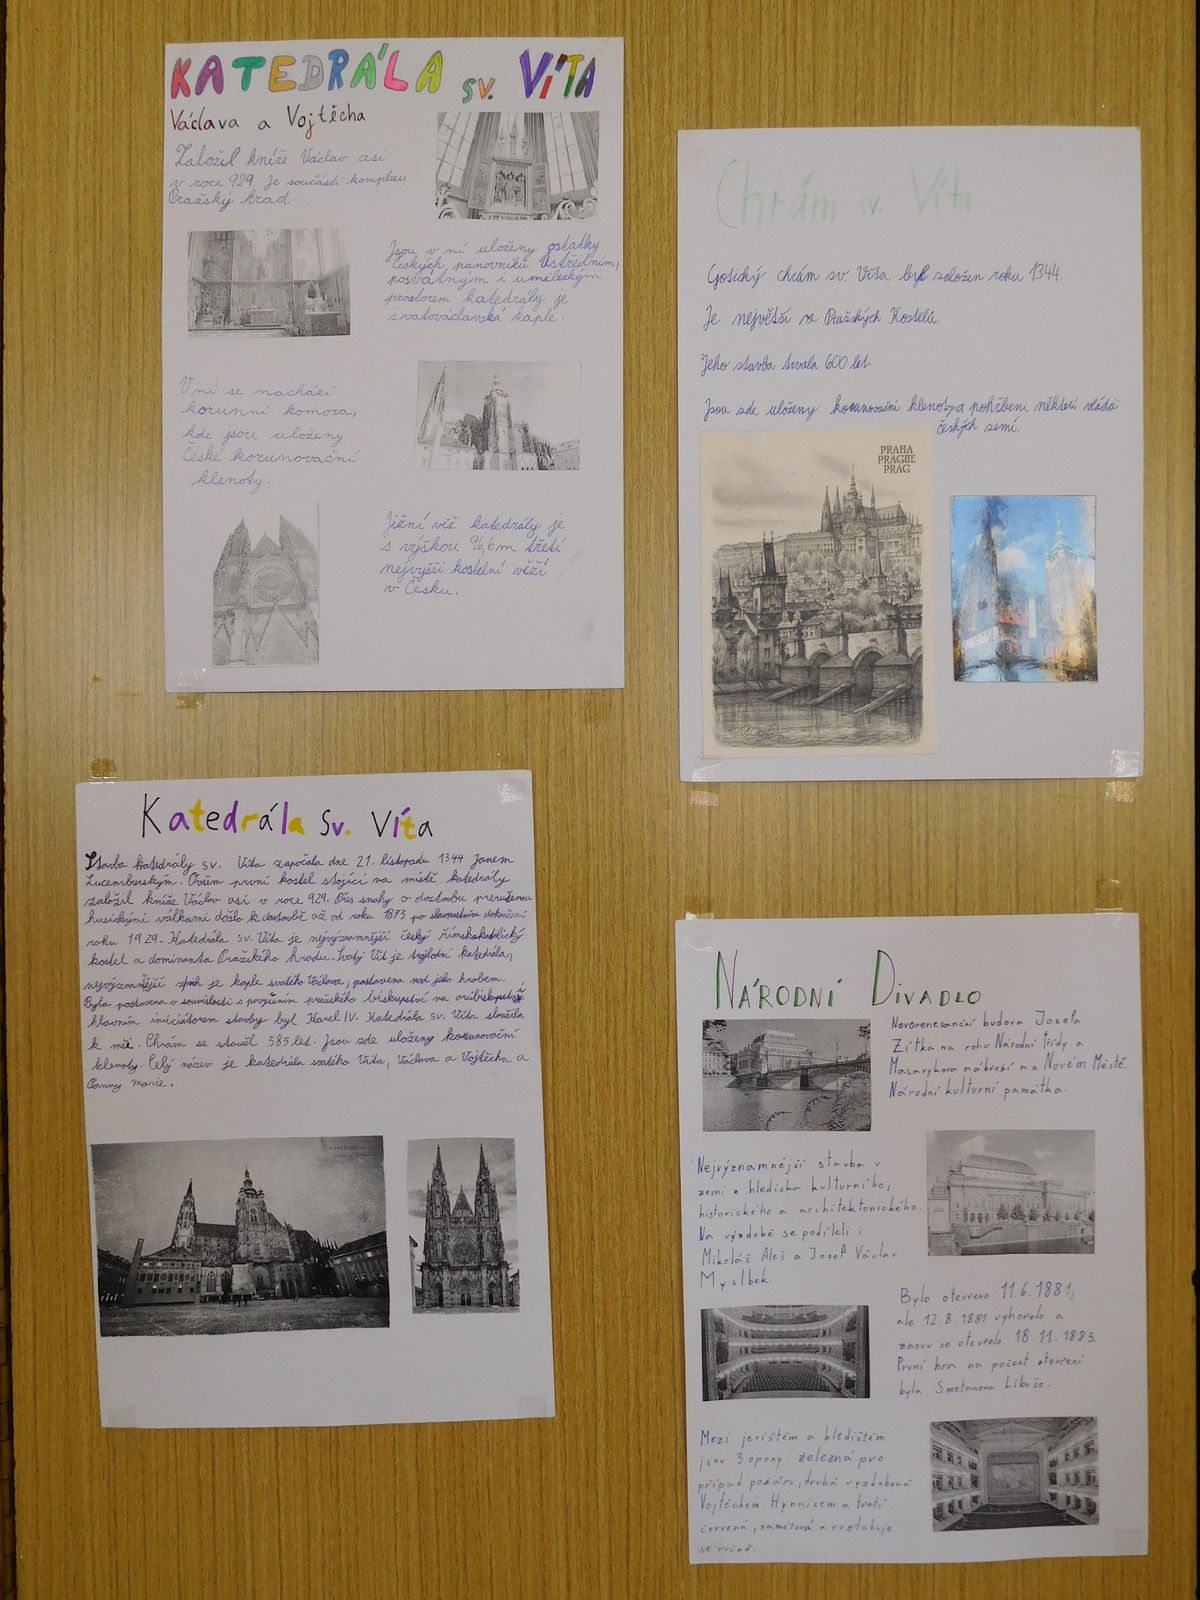 KATEDRÁLA sv. VÍTA
Václava a Vojtěcha
Založil kníže Václav asi
v roce 929. Je součástí komplexu
Pražský hrad.
Jsou v ní uloženy ostatky
českých panovníků. Ústředním,
posvátným i uměleckým
prostorem katedrály je
svatováclavská kaple.
V ní se nachází
korunní komora,
kde jsou uloženy
České korunovační
klenoty.
Jižní věž katedrály je
s výškou 96,6 m třetí
nejvyšší kostelní věží
v Česku.
Chrám sv. Víta
Gotický chrám sv. Víta byl založen roku 1344.
Je největší ze Pražských Kostelů.
Jeho stavba trvala 600 let.
Jsou zde uloženy korunovační klenoty a pohřbeni někteří vládci
českých zemí.
PRAHA
PRAGUE
PRAG
Katedrála Sv. Víta
Stavba katedrály sv. Víta započala dne 21. listopadu 1344 Janem
Lucemburským. Ovšem první kostel stojící na místě katedrály
založil kníže Václav asi v roce 929. Přes snahy o dostavbu přerušenou
husickými válkami došlo k dostavbě až od roku 1873 po slavnostním dokončení
roku 1929. Katedrála sv. Víta je nejvýznamnější český římskokatolický
kostel a dominanta Pražského hradu. Svatý Vít je trojlodní katedrála,
nejvýznamější je kaple svatého Václava, postavena nad jeho hrobem.
Byla postavena v souvislosti s povýšením pražského biskupství na arcibiskupství
hlavním iniciátorem stavby byl Karel IV. Katedrála sv. Víta sloužila
k mši. Chrám se stavěl 585 let. Jsou zde uloženy korunovační
klenoty. Celý název je katedrála svatého Víta, Václava a Vojtěcha a
Panny marie.
NÁRODNÍ DIVADLO
Novorenesanční budova Josefa
Zítka na rohu Národní třídy a
Masarykova nábřeží na Novém Městě.
Národní kulturní památka.
Nejvýznamnější stavba v
zemi z hlediska kulturního,
historického a architektonického.
Na výzdobě se podíleli i
Mikoláš Aleš a Josef Václav
Myslbek.
Bylo otevřeno 11.6.1881,
ale 12.8.1881 vyhořelo a
znovu se otevřelo 18.11.1883.
První hra na počest otevření
byla Smetanova Libuše.
Mezi jevištěm a hledištěm
jsou 3 opony: železná pro
případ požáru, druhá vyzdobená
Vojtěchem Hynaisem a třetí
červená, sametová a roztahuje
se ručně.